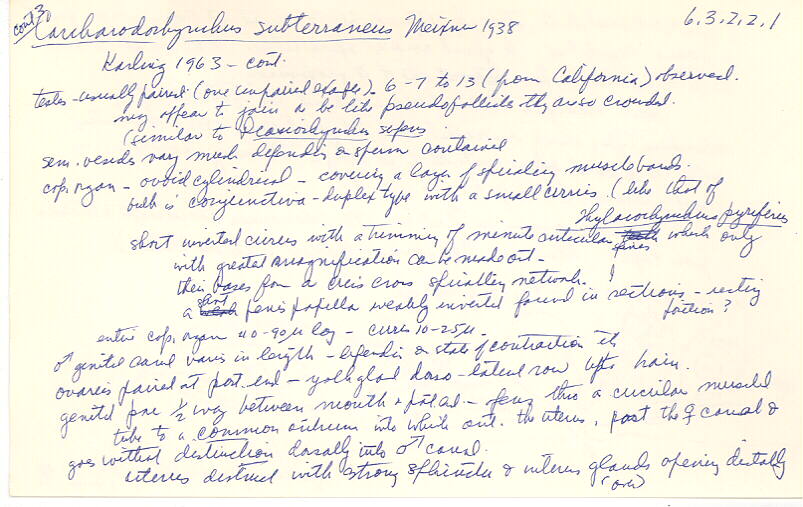 cont 3 Carcharodorhynchus subterraneus Meixner 1938 6.3.2.2.1
Karling 1963 - cont.
testes - usually paired (one unpaired example). 6-7 to 13 (from California) observed.
may appear to join & be like pseudofollicles they are so crowded.
(similar to
sem. vesicles vary much depending on sperm contained
cop. organ - ovoid cylindrical - covering a layer of spiralling muscle bands.
bulb is conjunctiva - duplex type with a small cirrus. (like that of
Thylacorhynchus pyriferus
short inverted cirrus with a trimming of minute cuticular which only
with greatest magnification can be made out -
their bases form a criss cross spiralling network.
a penis papilla weakly inverted found in sections - resting
position?
entire cop. organ 40-90µ long - cirrus 10-25µ -
♂ genital canal varies in length - depending on state of contraction
ovaries paired at post. end - yolk gland dorso-lateral row brain.
genital pore ½ way between mouth & - opens thru a circular muscled
tube to a common atrium into which ant. the uterus, post the ♀ canal &
goes without distinction dorsally into ♂ canal.
uterus distinct with strong sphincter & uterus glands opening distally
(over)